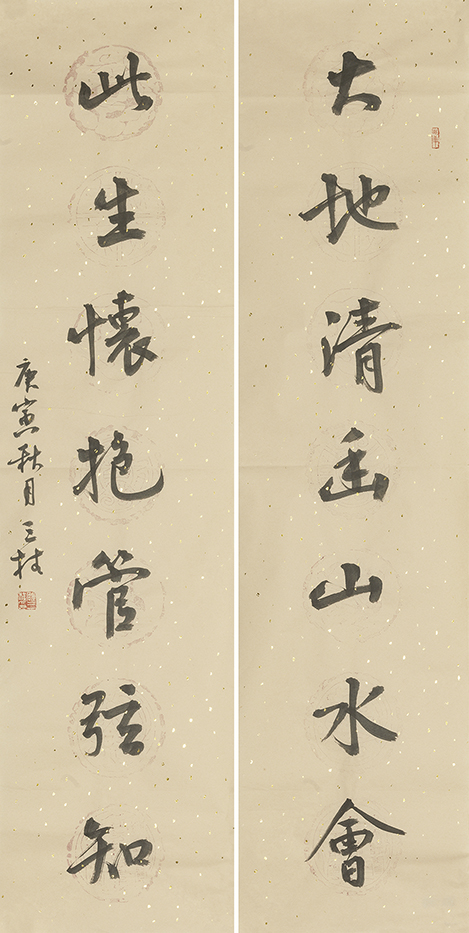 大地清幽山水會
此生懷抱管弦知
庚寅秋月三村